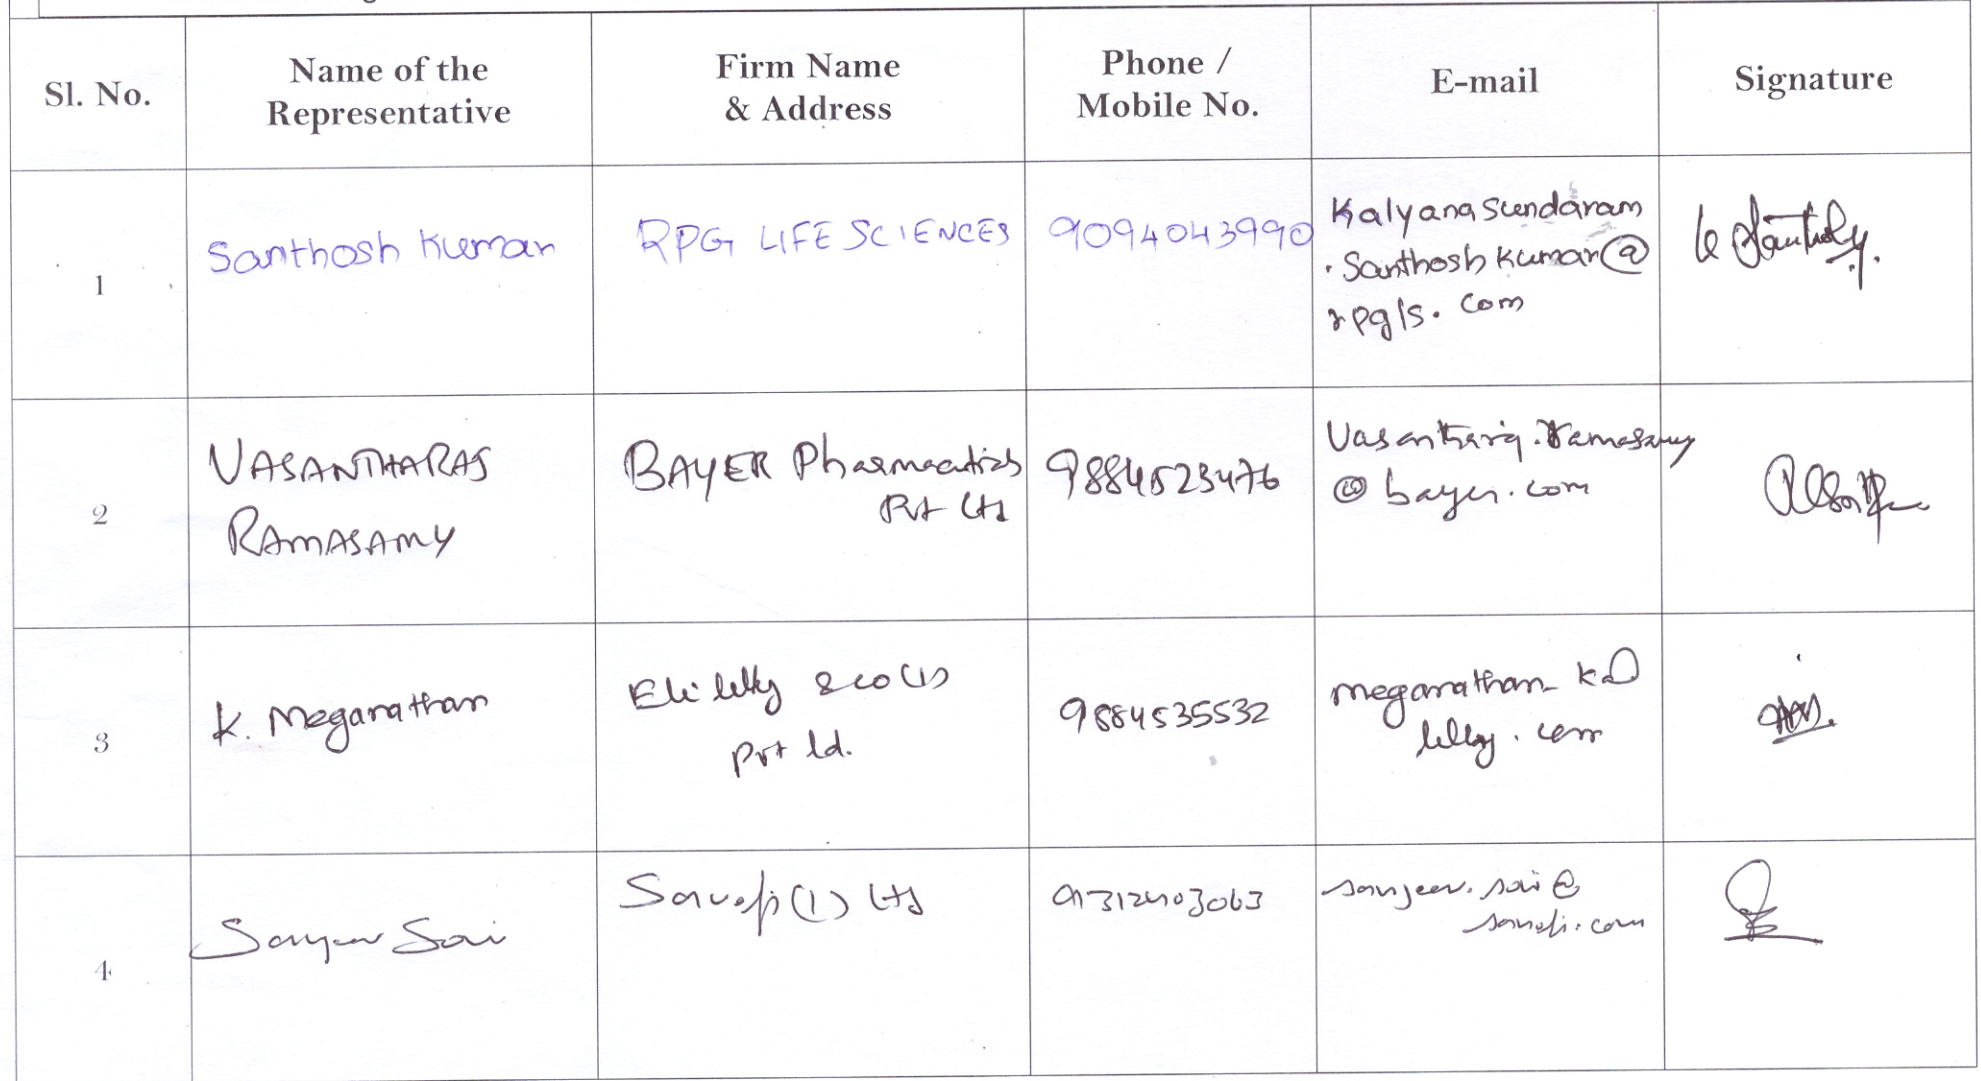 Sl. No.
Name of the
Representative
Firm Name
& Address
Phone /
Mobile No.
E-mail
Signature
1
Santhosh Kumar
RPG LIFE SCIENCES
9094043990
Kalyanasundaram
.Santhoshkumar@
rpgls.com
2
VASANTHARAJ
RAMASAMY
BAYER Pharmaceuticals
Pvt Ltd
9884523476
Vasantharaj.Ramasamy
@bayer.com
3
K. Meganathan
Eli lilly & co (I)
Pvt ld.
9884535532
meganathan_k@
lilly.com
4
Sanjeev Soi
Sanofi (I) Ltd
9312403063
sanjeev.soi@
sanofi.com